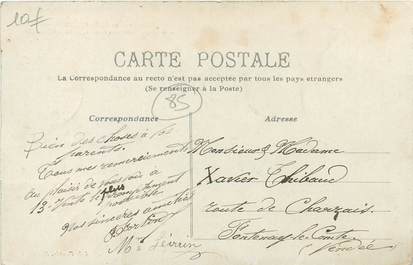 10f
CARTE POSTALE
La Correspondance au recto n'est pas acceptée par tous les pays étrangers
(Se renseigner à la Poste)
Correspondance
85
Adresse
Bien des choses à vos
parents.
Tous mes remerciements
au plaisir de vous voir
13. le plus promptement
possible
Vos sincères amitiés
Monsieur & Madame
Xavier Thibaud
route de Charzais
Fontenay-le-Comte
Vendée